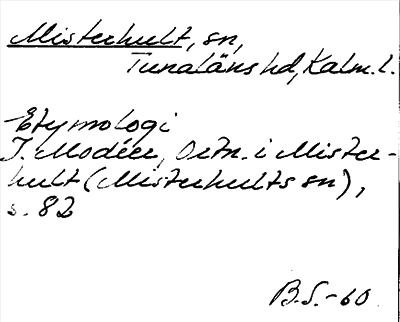 Misterhult, sn,
Tunaläns hd, Kalm. l.
Etymologi
I. Modéer, Ortn. i Mister-
hult (Misterhults sn),
s. 82
B.S.-60